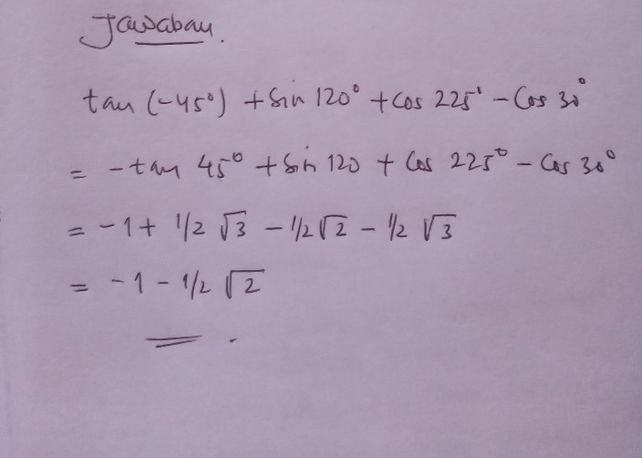 Jawaban.
tan (-45°) + Sin 120° + Cos 225° - Cos 30°
= -tan 45° + Sin 120 + Cos 225° - Cos 30°
= -1 + 1/2 √3 - 1/2 √2 - 1/2 √3
= -1 - 1/2 √2